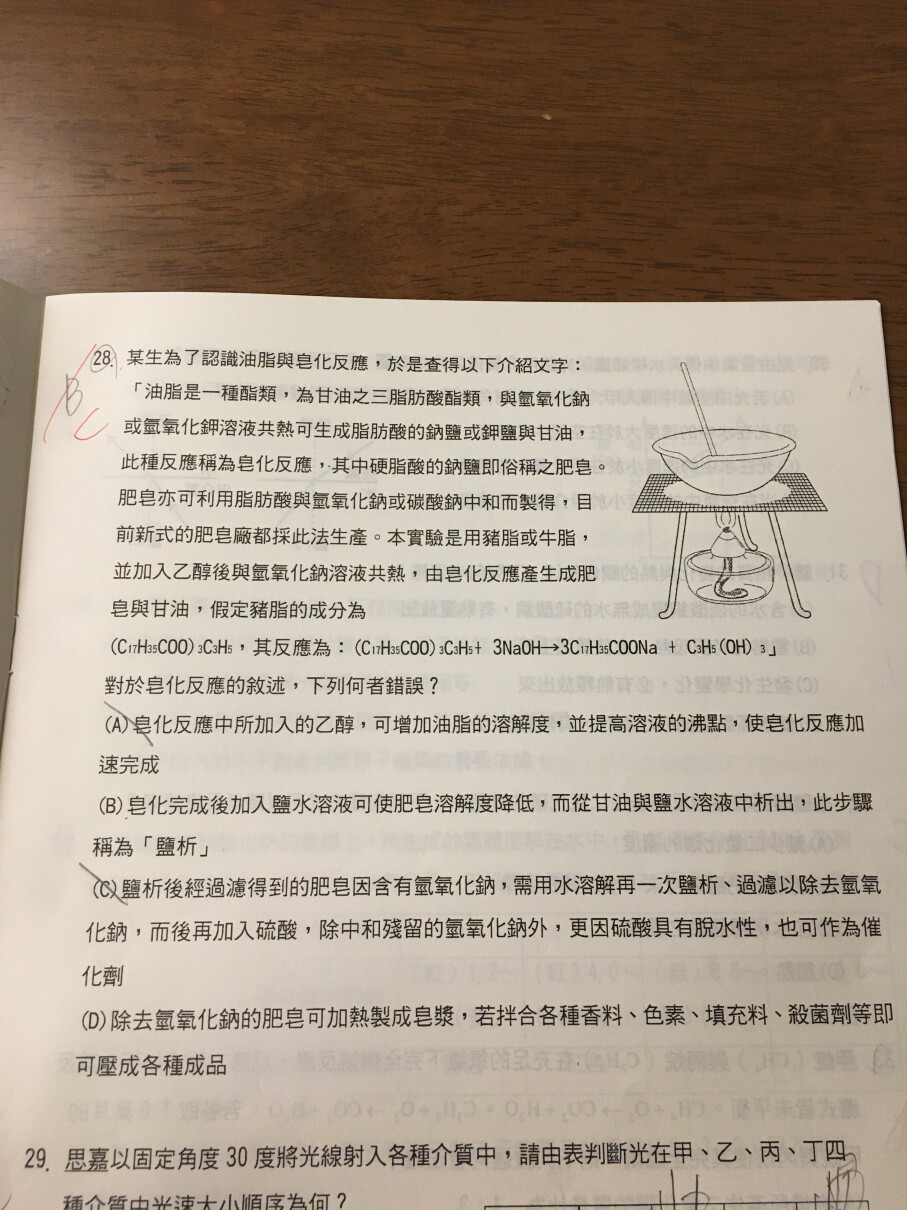 28. 某生為了認識油脂與皂化反應，於是查得以下介紹文字：
「油脂是一種酯類，為甘油之三脂肪酸酯類，與氫氧化鈉
或氫氧化鉀溶液共熱可生成脂肪酸的鈉鹽或鉀鹽與甘油，
此種反應稱為皂化反應，其中硬脂酸的鈉鹽即俗稱之肥皂。
肥皂亦可利用脂肪酸與氫氧化鈉或碳酸鈉中和而製得，目
前新式的肥皂廠都採此法生產。本實驗是用豬脂或牛脂，
並加入乙醇後與氫氧化鈉溶液共熱，由皂化反應產生成肥
皂與甘油，假定豬脂的成分為
(C17H35COO)3C3H5，其反應為：(C17H35COO)3C3H5+ 3NaOH→3C17H35COONa + C3H5(OH)3」
對於皂化反應的敘述，下列何者錯誤？
(A)皂化反應中所加入的乙醇，可增加油脂的溶解度，並提高溶液的沸點，使皂化反應加
速完成
(B)皂化完成後加入鹽水溶液可使肥皂溶解度降低，而從甘油與鹽水溶液中析出，此步驟
稱為「鹽析」
(C)鹽析後經過濾得到的肥皂因含有氫氧化鈉，需用水溶解再一次鹽析、過濾以除去氫氧
化鈉，而後再加入硫酸，除中和殘留的氫氧化鈉外，更因硫酸具有脫水性，也可作為催
化劑
(D)除去氫氧化鈉的肥皂可加熱製成皂漿，若拌合各種香料、色素、填充料、殺菌劑等即
可壓成各種成品
29. 思嘉以固定角度 30 度將光線射入各種介質中，請由表判斷光在甲、乙、丙、丁四
種介質中光速大小順序為何？
B
C